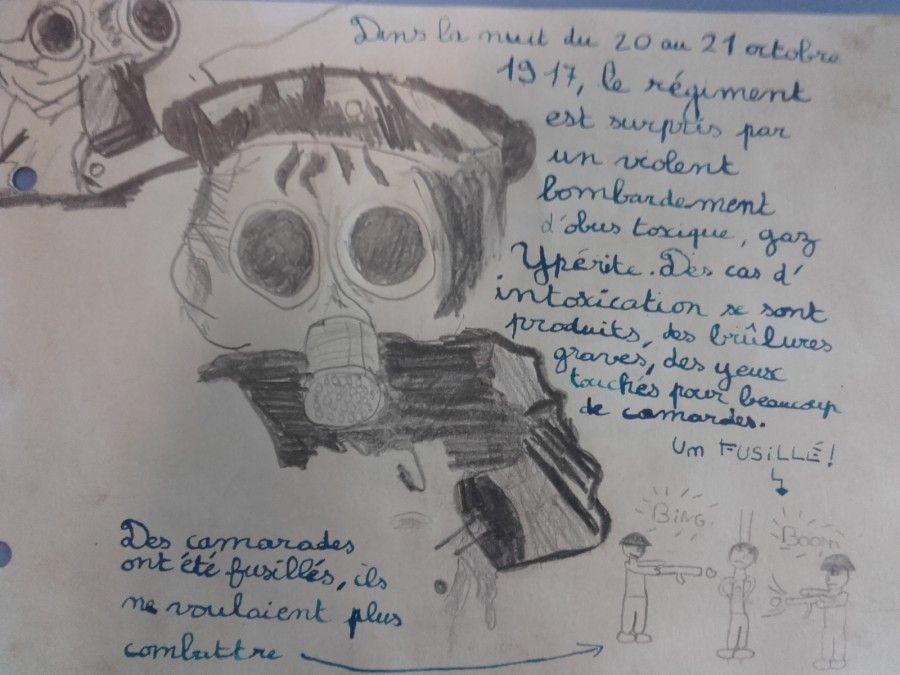 Dans la nuit du 20 au 21 octobre
1917, le régiment
est surpris par
un violent
bombardement
d'obus toxique, gaz
Ypérite. Des cas d'
intoxication se sont
produits, des brûlures
graves, des yeux
touchés pour beaucoup
de camardes.
Un FUSILLÉ!
BING
BOOM
Des camarades
ont été fusillés, ils
ne voulaient plus
combattre